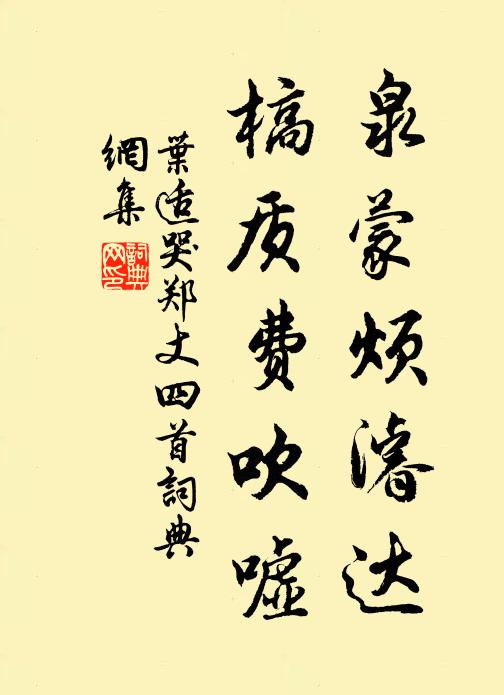 泉蒙烦濬达
槁质费吹嘘
葉适哭郑丈四首詞典
網集
詞典网印